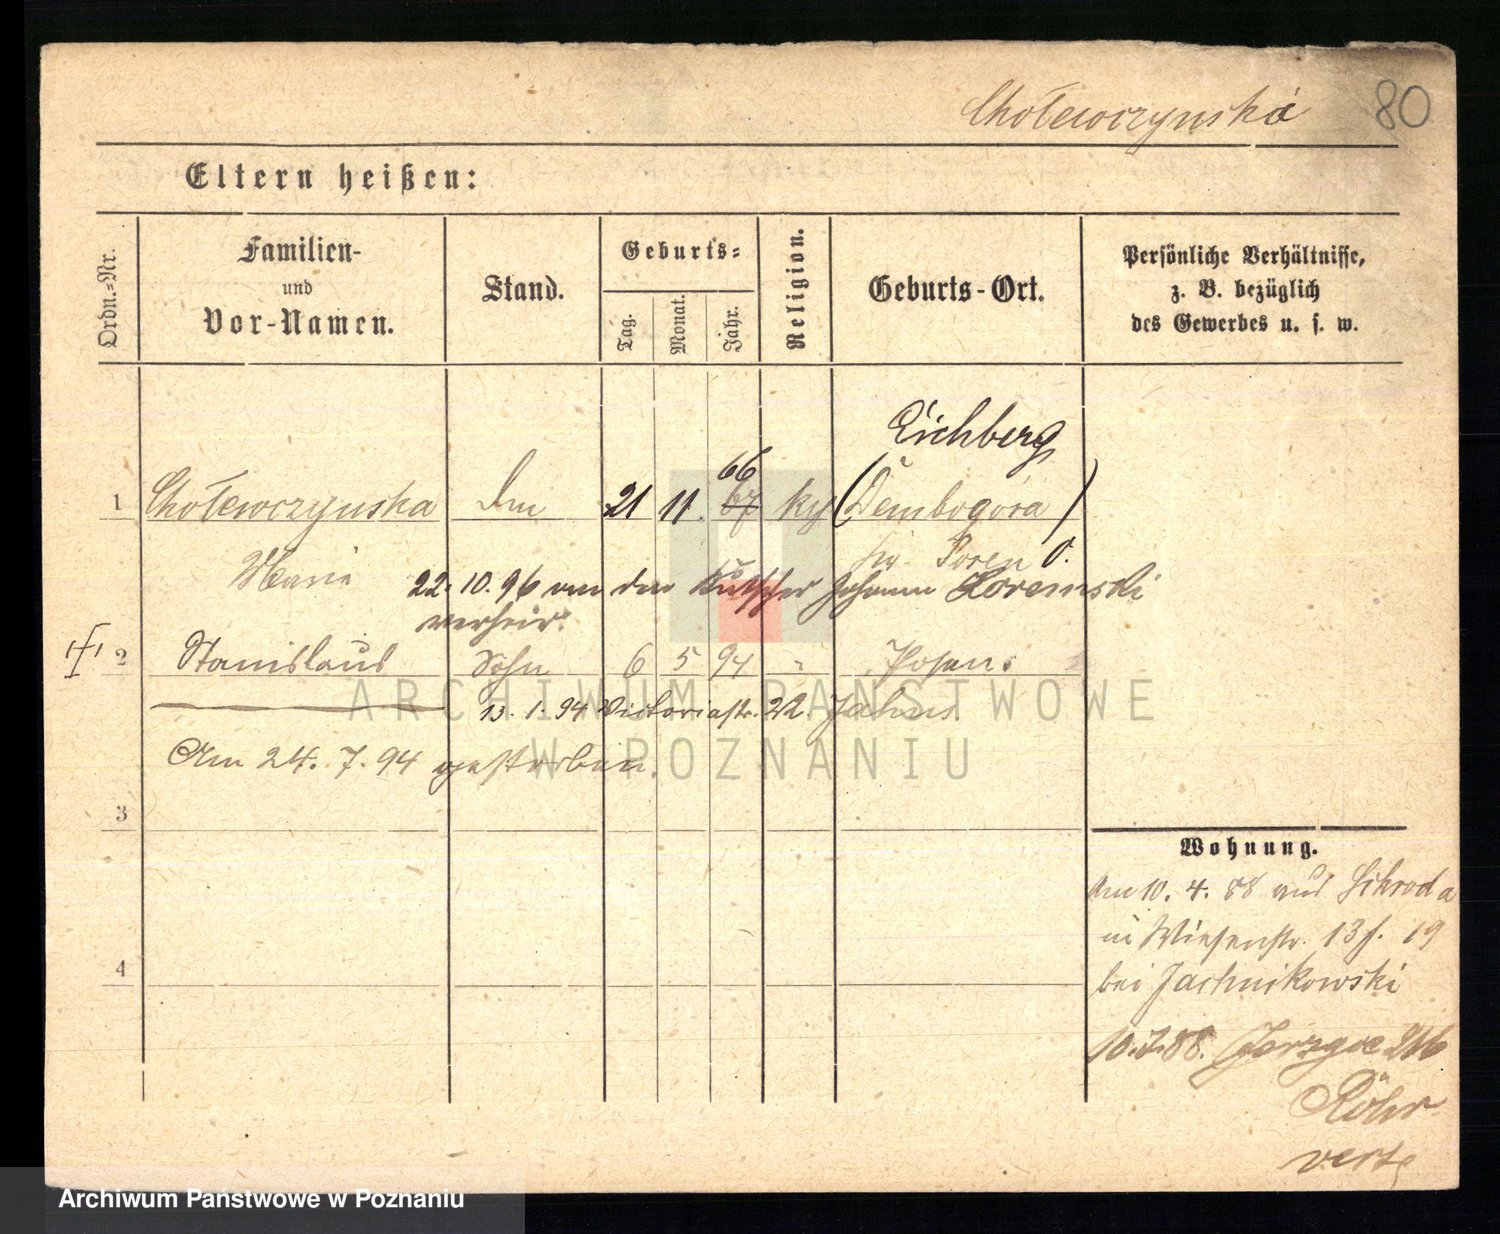 Chołewczynska 80
Eltern heißen:
Ordn.-Nr.
Familien-
und
Vor-Namen.
Stand.
Geburts-
Tag.
Monat.
Jahr.
Religion.
Geburts-Ort.
Persönliche Verhältnisse,
z. B. bezüglich
des Gewerbes u. s. w.
Eichberg
66
1 Chołewczynska 21 11. 67 (Dembogóra)
Marie Posen O.
22. 10. 96 an den Kutscher Johann Loremski
verheir.
2 Stanislaus Sohn 6 5 94 " Posen.
13. 1. 94 Victoriastr. 22 Jahns
Am 24. 7. 94 gestorben.
3
4
Wohnung.
Am 10. 4. 88 aus Schroda
in Wiesenstr. 13 19
bei Jachnikowski
10.7.88. Jerzyce 216
Röhr
verte
ARCHIWUM PAŃSTWOWE
W POZNANIU
Archiwum Państwowe w Poznaniu